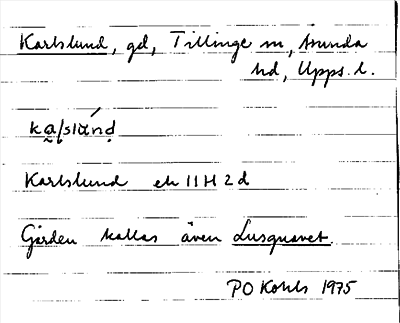 Karlslund, gd, Tillinge sn, Åsunda
hd, Upps. l.
Karlslund ek 11H 2d
Gården kallas även Lusgnavet.
PO Kohls 1975